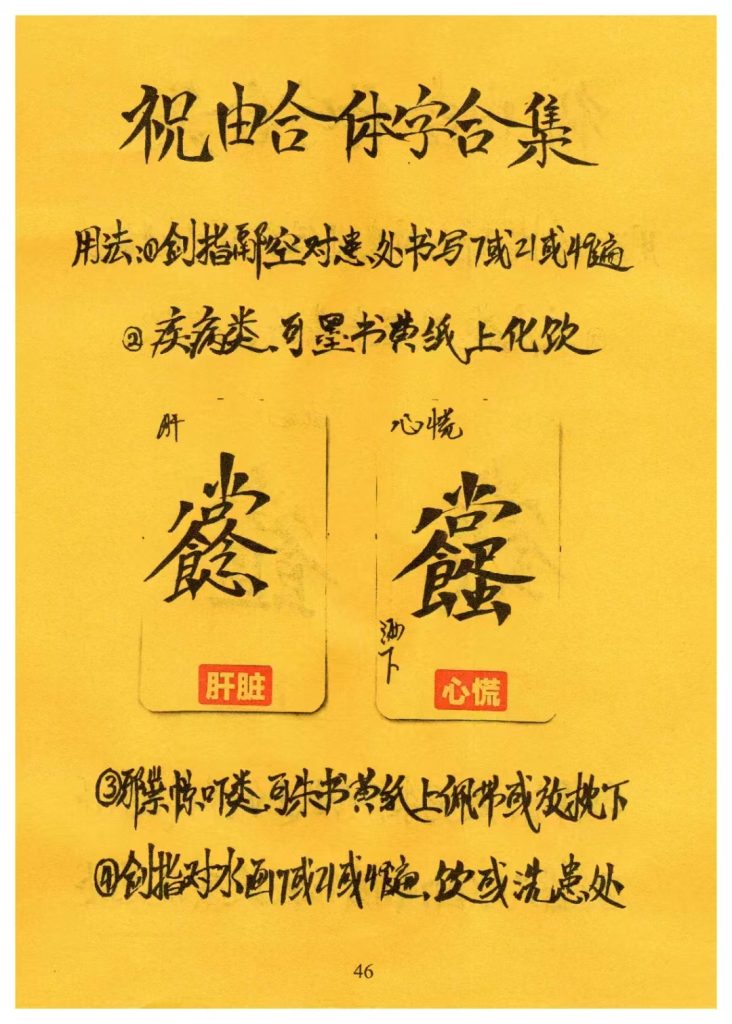 祝由合体字合集
用法:①剑指凌空对患处书写7或21或49遍
②疾病类、可墨书黄纸上化饮
肝
心慌
酒下
肝脏
心慌
③邪祟惊吓类、可朱书黄纸上佩带或放枕下
④剑指对水画7或21或49遍、饮或洗患处
46